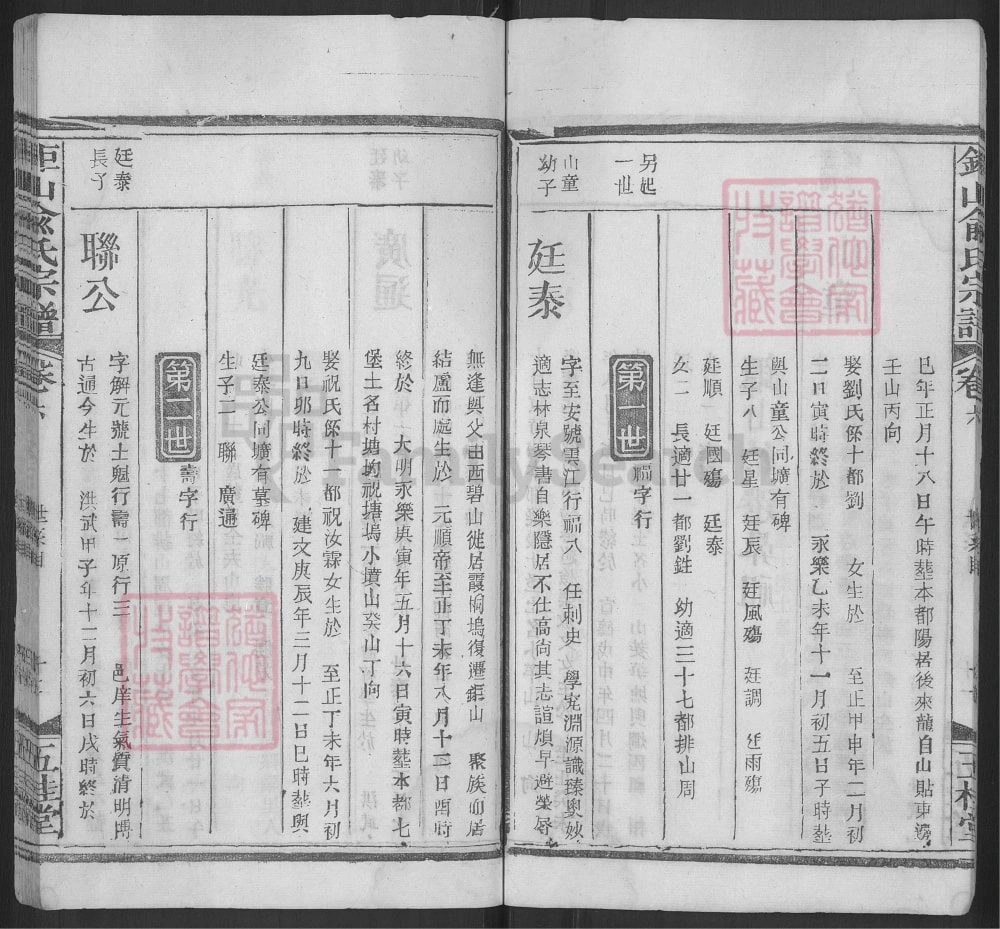 巳年正月十八日午時塟本都陽居後來龍自山貼東邊
壬山丙向
娶劉氏係十都劉 女生於 至正甲申年二月初
二日寅時終於 永樂乙未年十一月初五日子時塟
與山童公同壙有碑
生子八 廷星 廷辰 廷風殤 廷調 廷雨殤
廷順 廷國殤 廷泰
女二 長適廿一都劉甡 幼適三十七都排山周
另起
一世
第一世 福字行
山童
幼子
廷泰
字至安號雲江行福八 任刺史 學究淵源識臻奧妙
適志林泉琴書自樂隱居不仕高尚其志諠煩早避榮辱
無逢與父由西碧山徙居霞桐塢復遷鉅山 聚族而居
結廬而處生於 元順帝至正丁未年八月十三日酉時
終於 大明永樂庚寅年五月十六日寅時塟本都七
堡土名村塘坳祝塘塢小墳山癸山丁向
娶祝氏係十一都祝汝霖女生於 至正丁未年六月初
九日卯時終於 建文庚辰年三月十二日巳時塟與
廷泰公同壙有墓碑
生子二 聯 廣通
第二世 壽字行
廷泰
長子
聯公
字解元號土魁行壽一原行三 邑庠生氣質清明博
古通今生於 洪武甲子年十二月初六日戌時終於
鉅山俞氏宗譜
卷六
五桂堂